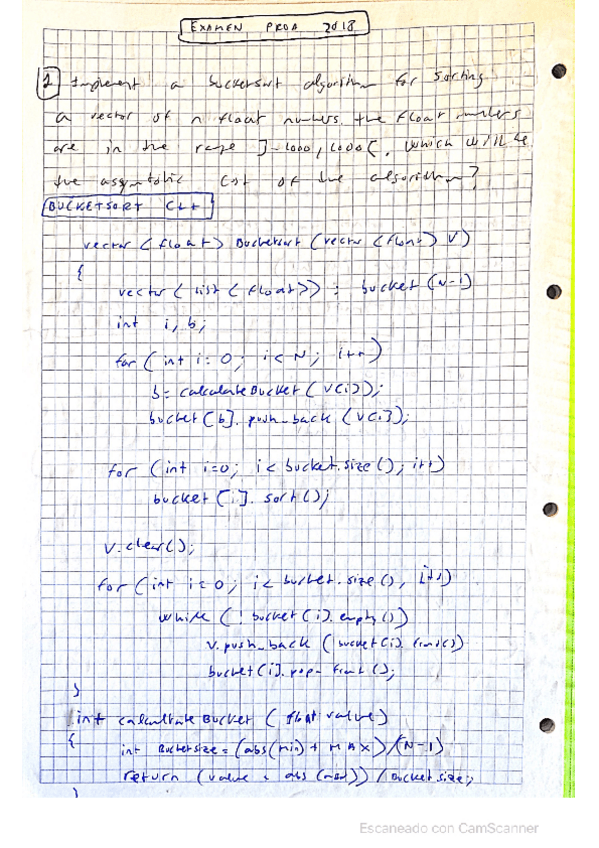 EXAMEN PROA 2018
1 Implement a bucketsort algorithm for sorting
a vector of n float numbers, the float numbers
are in the range ]-1000, 1000[. Which will be
the asymptotic cost of the algorithm?
BUCKETSORT C++
vector <float> Bucketsort (vector <float> V)
{
vector < list < float >> : bucket (N-1)
int i, b;
for (int i = 0; i < N; i++)
b = calculateBucket (V[i]);
bucket [b]. push_back (V[i]);
for (int i=0; i < bucket.size(); i++)
bucket [i]. sort();
V.clear();
for (int i=0; i < bucket.size(), i++)
while (! bucket(i).empty())
V.push_back (bucket(i).front())
bucket(i).pop_front();
}
int calculateBucket (float value)
{
int Bucketsize = (abs(Min) + MAX)/(N-1)
return (value + abs (min)) / Bucketsize;
}
Escaneado con CamScanner